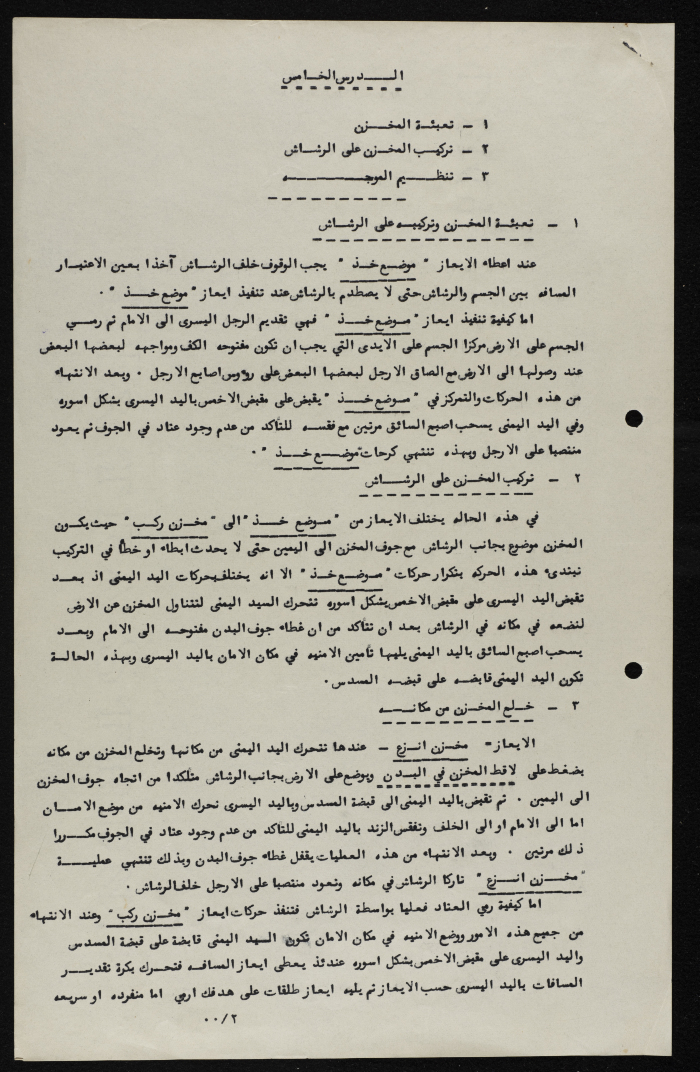 الدرس الخامس
١ - تعبئة المخزن
٢ - تركيب المخزن على الرشاش
٣ - تنظيم الموجه
١ - تعبئة المخزن وتركيبه على الرشاش
عند اعطاء الايعاز " موضع خذ " يجب الوقوف خلف الرشاش آخذا بعين الاعتبار
المسافه بين الجسم والرشاش حتى لا يصطدم بالرشاش عند تنفيذ ايعاز " موضع خذ " .
اما كيفية تنفيذ ايعاز " موضع خذ " فهي تقديم الرجل اليسرى الى الامام ثم رمسي
الجسم على الارض مركزا الجسم على الايدى التي يجب ان تكون مفتوحه الكف ومواجهه لبعضها البعض
عند وصولها الى الارض مع الصاق الارجل لبعضها البعض على رؤوس اصابع الارجل . وبعد الانتهاء
من هذه الحركات والتمركز في " موضع خذ " يقبض على مقبض الاخمص باليد اليسرى بشكل اسوره
وفي اليد اليمنى يسحب اصبع السائق مرتين مع فقسه للتأكد من عدم وجود عتاد في الجوف ثم يعود
منتصبا على الارجل وبهذه تنتهي كرحات " موضع خذ " .
٢ - تركيب المخزن على الرشاش
في هذه الحاله يختلف الايعاز من " موضع خذ " الى " مخزن ركب " حيث يكون
المخزن موضوع بجانب الرشاش مع جوف المخزن الى اليمين حتى لا يحدث ابطاء او خطأ في التركيب
نبتدىء هذه الحركه بتكرار حركات " موضع خذ " الا انه يختلف بحركات اليد اليمنى اذ بعد
تقبض اليد اليسرى على مقبض الاخمص بشكل اسوره تتحرك السيد اليمنى لتتناول المخزن عن الارض
لنضعه في مكانه في الرشاش بعد ان نتأكد من ان غطاء جوف البدن مفتوحه الى الامام وبعد
يسحب اصبع السائق باليد اليمنى يليها تأمين الامنيه في مكان الامان باليد اليسرى وبهذه الحالة
تكون اليد اليمنى قابضه على قبضه المسدس .
٣ - خلع المخزن من مكانه
الايعاز - مخزن انزع - عندها تتحرك اليد اليمنى من مكانها وتخلع المخزن من مكانه
بضغط على لاقط المخزن في البدن ويوضع على الارض بجانب الرشاش متأكدا من اتجاه جوف المخزن
الى اليمين . ثم نقبض باليد اليمنى الى قبضة المسدس وباليد اليسرى نحرك الامنيه من موضع الامان
اما الى الامام او الى الخلف وتفقس الزند باليد اليمنى للتأكد من عدم وجود عتاد في الجوف مكررا
ذلك مرتين . وبعد الانتهاء من هذه العمليات يقفل غطاء جوف البدن وبذلك تنتهي عملية
" مخزن انزع " تاركا الرشاش في مكانه وتعود منتصبا على الارجل خلف الرشاش .
اما كيفية رمي العتاد فعليا بواسطة الرشاش فتنفذ حركات ايعاز " مخزن ركب " وعند الانتهاء
من جميع هذه الامور ووضع الامنيه في مكان الامان تكون السيد اليمنى قابضة على قبضة المسدس
واليد اليسرى على مقبض الاخمص بشكل اسوره عندئذ يعطى ايعاز المسافه فتحرك بكرة تقدير
المسافات باليد اليسرى حسب الايعاز ثم يليه ايعاز طلقات على هدفك ارمي اما منفرده او سريعه
٠٠/٢